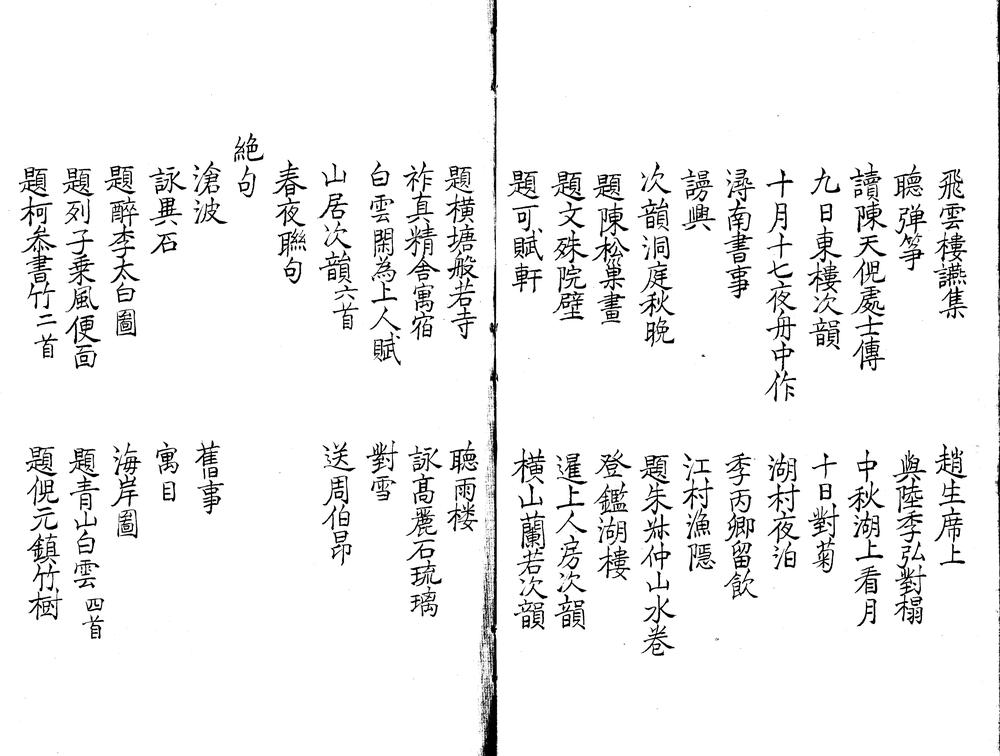 飛雲樓讌集　趙生席上
聽彈箏　與陸季弘對榻
讀陳天倪處士傳　中秋湖上看月
九日東樓次韻　十日對菊
十月十七夜舟中作　湖村夜泊
潯南書事　季丙卿留飲
謾興　江村漁隱
次韻洞庭秋晚　題朱叔仲山水卷
題陳松巢畫　登鑑湖樓
題文殊院壁　暹上人房次韻
題可賦軒　橫山蘭若次韻
題橫塘般若寺　聽雨楼
祚真精舍寓宿　詠髙麗石琉璃
白雲閑為上人賦　對雪
山居次韻六首　送周伯昂
春夜聯句
絶句
滄波　舊事
詠異石　寓目
題醉李太白圖　海岸圖
題列子乗風便面　題青山白雲四首
題柯叅書竹二首　題倪元鎮竹樹